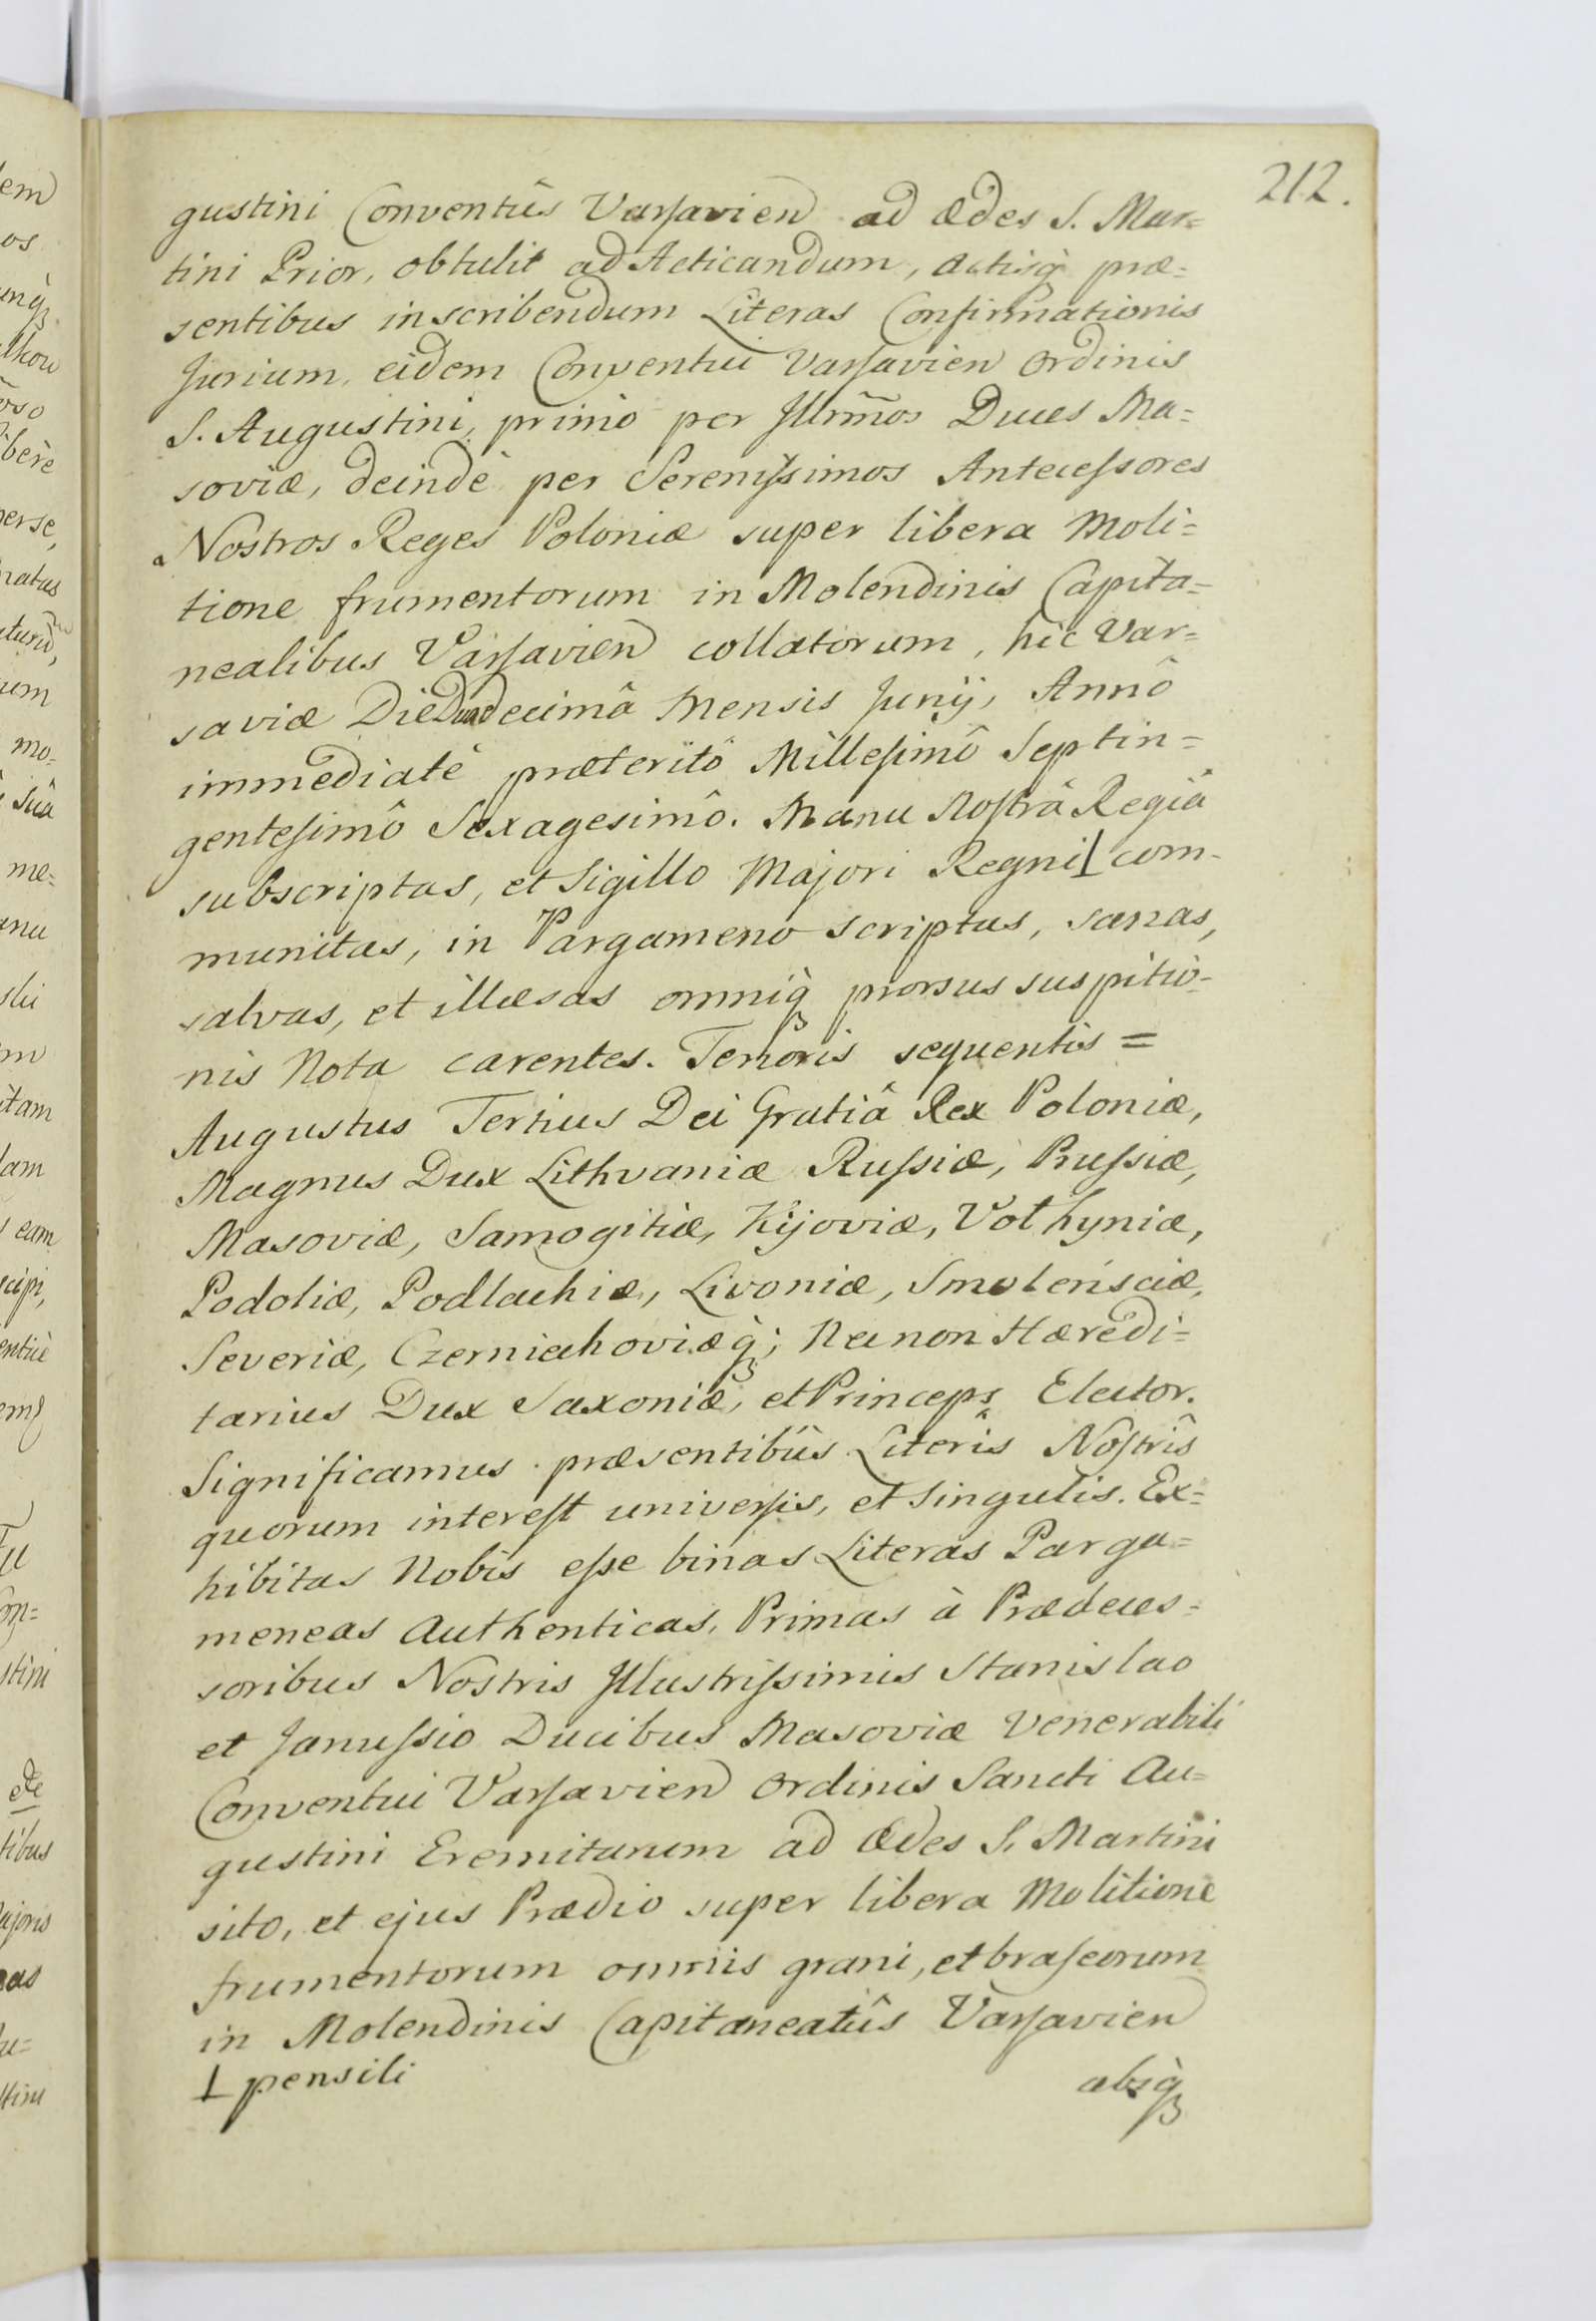 212.
gustini Conventûs Varsavien ad Ædes S. Mar=
tini Prior, obtulit ad Acticandum, actisq̀ præ=
sentibus inscribendum Literas Confirmationis
Jurium eidem Conventui Varsavien Ordinis
S. Augustini, primo per Illrm̃os Duces Ma=
soviæ, deindè per Serenissimos Antecessores
Nostros Reges Poloniæ super libera Moli=
tione frumentorum in Molendinis Capita=
nealibus Varsavien collatorum, hic Var=
saviæ Die Duodecimâ Mensis Junij, Annô
immediatè præteritô Millesimô Septin=
gentesimô Sexagesimô. Manu Nostrâ Regiâ
subscriptas, et Sigillo Majori Regni ⊥ com-
munitas, in Pargameno scriptas, sanas,
salvas, et illæsas omniq̀ prorsus suspitio-
nis Nota carentes. Tenoris sequentis =
Augustus Tertius Dei Gratiâ Rex Poloniæ,
Magnus Dux Lithvaniæ Russiæ, Prussiæ,
Masoviæ, Samogitiæ, Kijoviæ, Volhyniæ,
Podoliæ, Podlachiæ, Livoniæ, Smolensciæ,
Severiæ, Czerniechoviæq̀; Necnon Hæredi=
tarius Dux Saxoniæ, et Princeps Elector.
Significamus præsentibûs Literîs Nostrîs
quorum interest universis, et singulis. Ex=
hibitas Nobis esse binas Literas Parga=
meneas Authenticas, Primas à Prædeces=
soribus Nostris Illustrissimis Stanislao
et Janussio Ducibus Masoviæ Venerabili
Conventui Varsavien Ordinis Sancti Au=
gustini Eremitarum ad Ædes S. Martini
sito, et ejus Prædio super libera Molitione
frumentorum omnis grani, et braseorum
in Molendinis Capitaneatûs Varsavien
⊥ pensili
absq̀